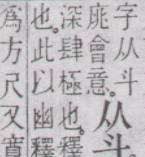 字从斗
庣會意。从斗
深肆極也。釋
也。此以幽釋
為方尺又寬